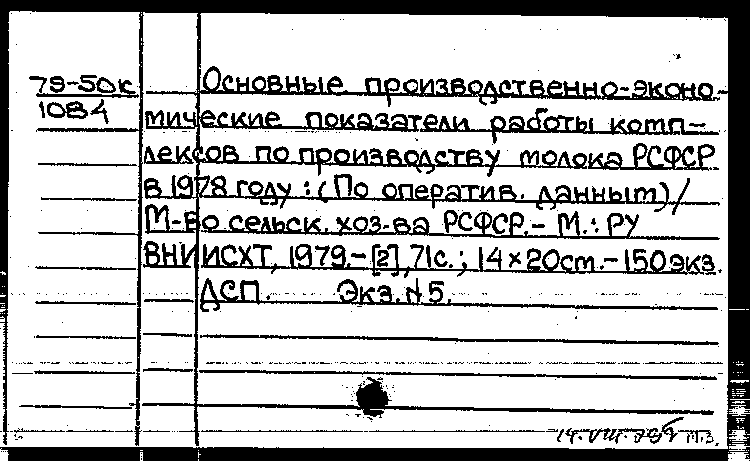 79-50к
1084
Основные производственно-эконо-
мические показатели работы комп-
лексов по производству молока РСФСР
в 1978 году : (По оператив. данным) /
М-во сельск. хоз-ва РСФСР. - М.: РУ
ВНИИСХТ, 1979. - [2], 71с.; 14×20см. - 150экз.
ДСП. Экз. №5.
14. VIII. м.з.